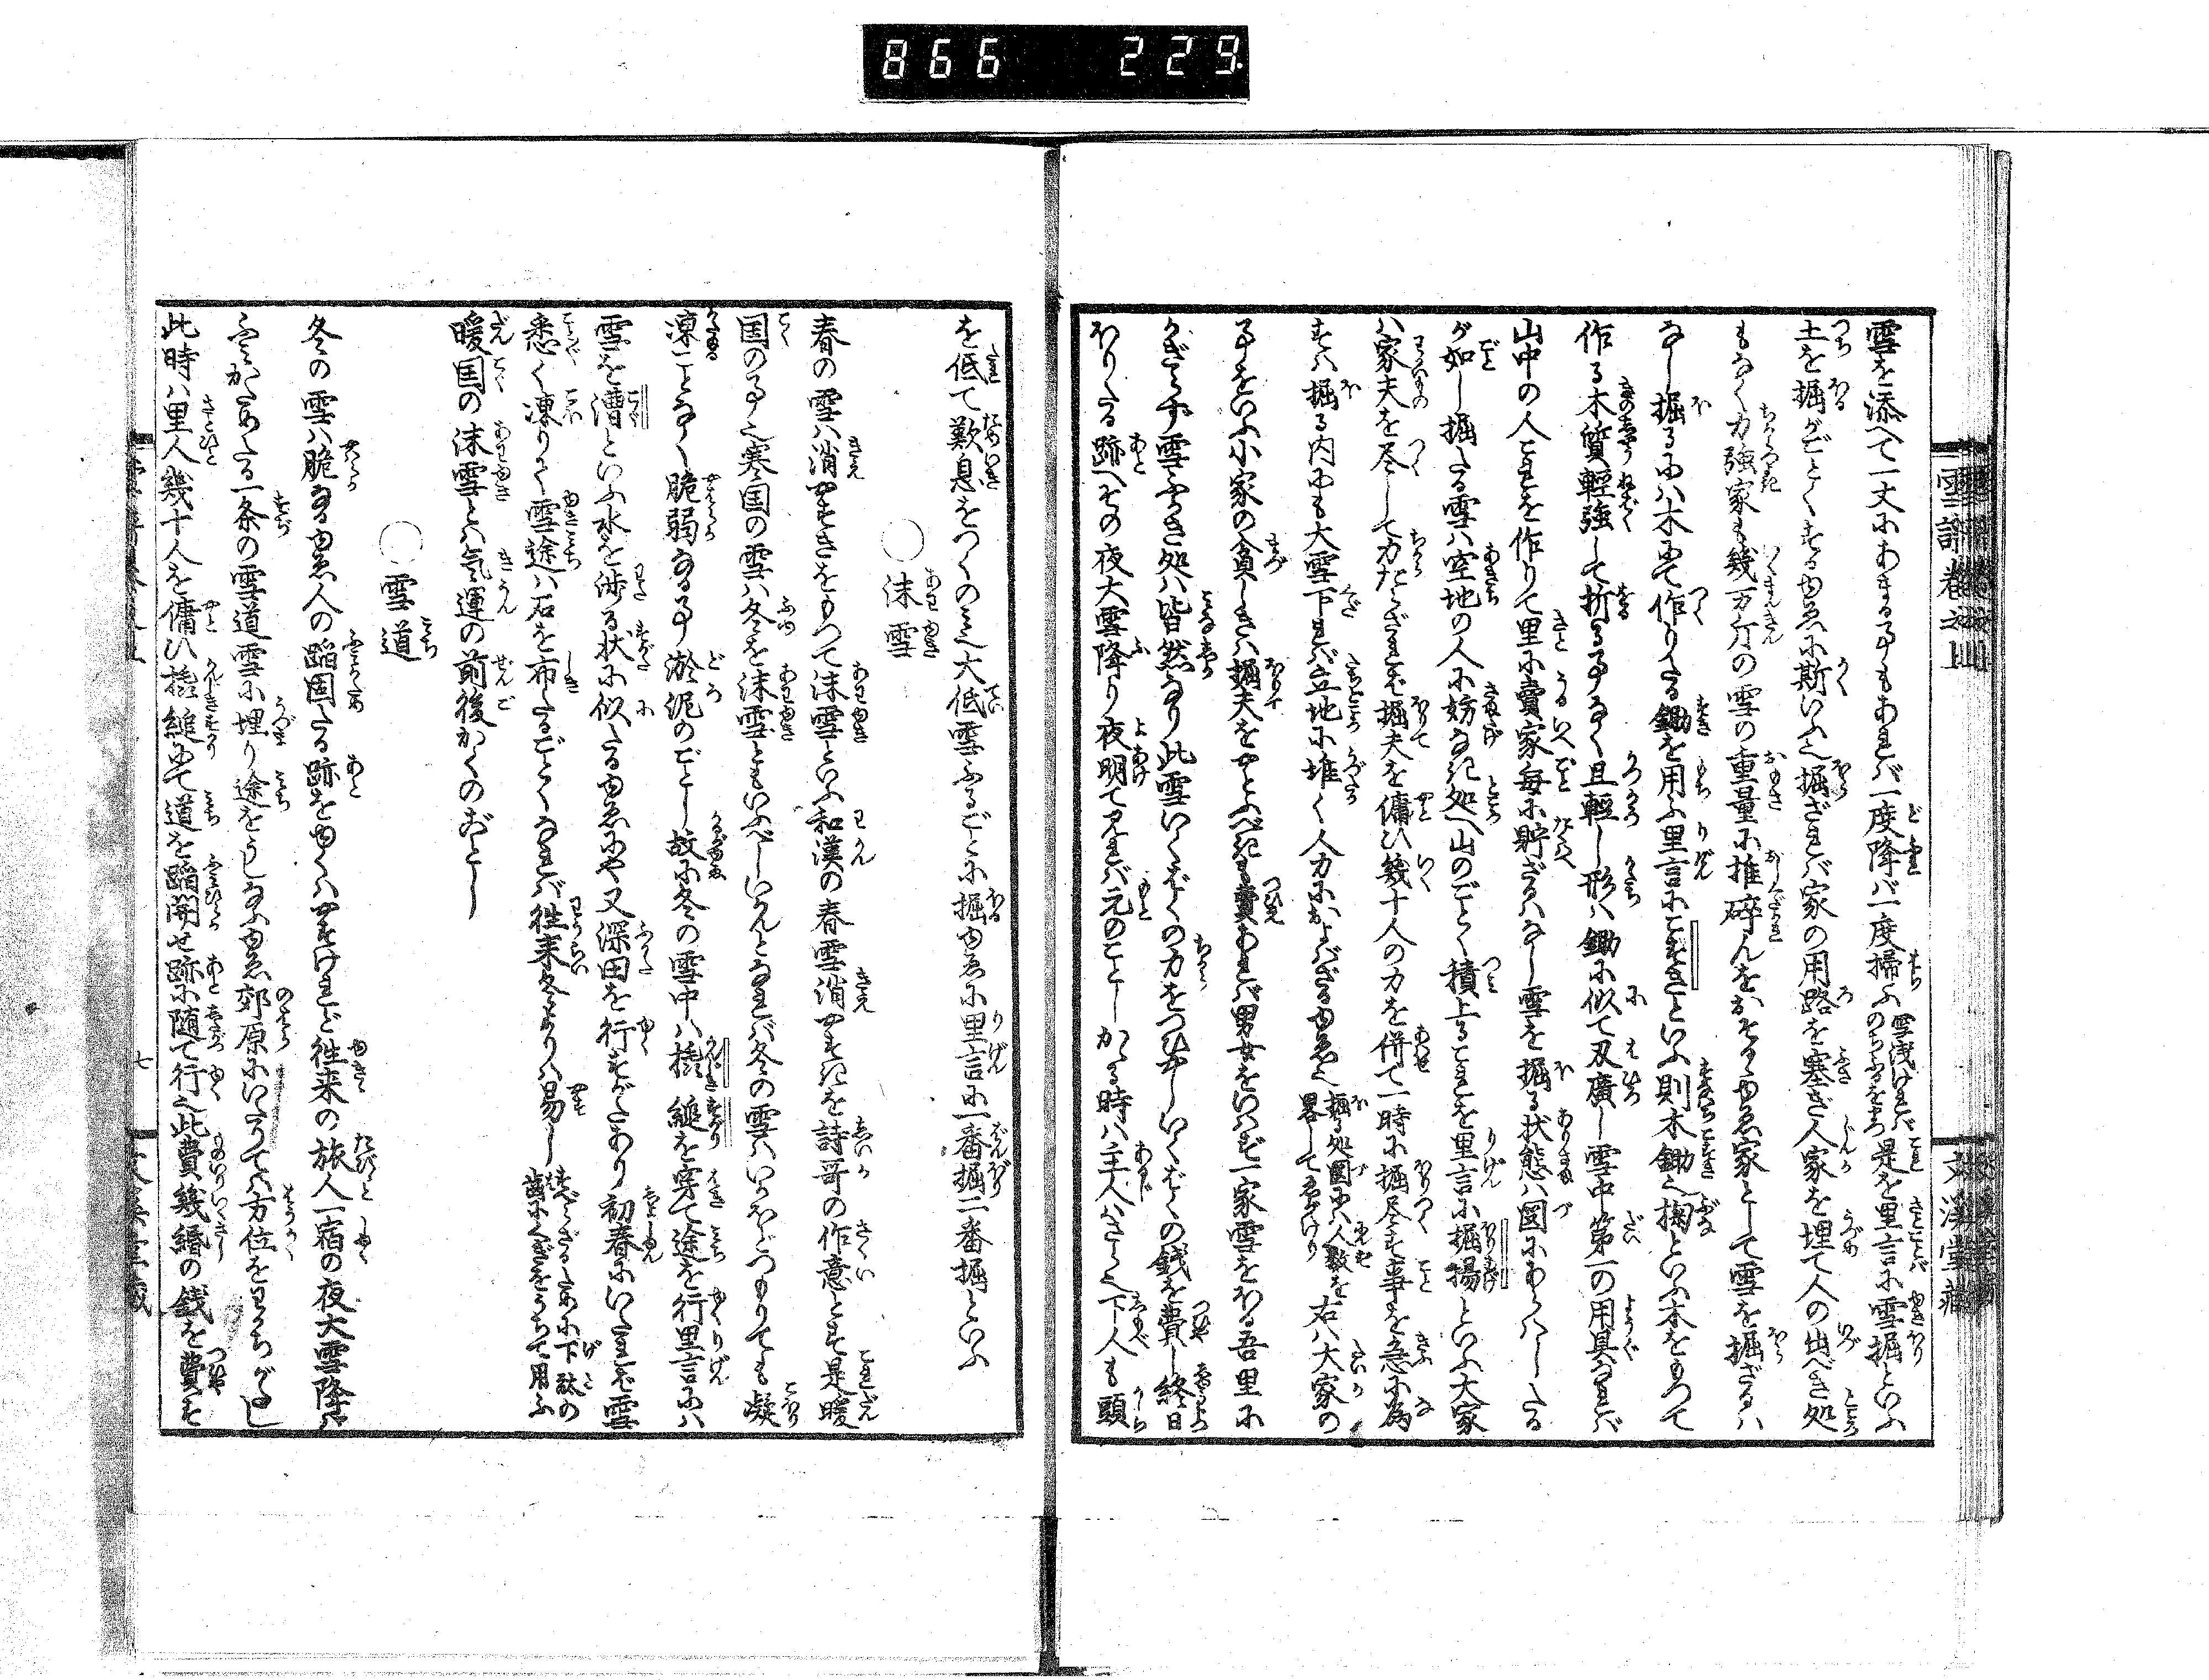 866 229
雪譜巻之上
文渓堂蔵
雪を添へて一丈にあまる事もあれバ一度降バ一度掃ふ雪浅けれバのちふるをまち是を里言に雪掘といふ
土を掘がごとくするゆゑに斯いふ也掘ざれバ家の用路を塞ぎ人家を埋て人の出べき処
もなく力強家も幾万斤の雪の重量に推碎んをおそるゝゆゑ家として雪を掘ざるハ
なし掘るにハ木にて作りたる鋤を用ふ里言にこすきといふ則木鋤也掬といふ木をもつて
作る木質軽強して折る事なく且軽し形ハ鋤に似て刃廣し雪中第一の用具なれバ
山中の人これを作りて里に賣家毎に貯ざるハなし雪を掘る状態ハ図にあらハしたる
が如し掘たる雪ハ空地の人に妨なき処へ山のごとく積上るこれを里言に掘揚といふ大家
ハ家夫を尽して力たらざれバ掘夫を傭ひ幾十人の力を併て一時に掘尽す事を急に為
すハ掘る内にも大雪下れバ立地に堆く人力におよばざるゆゑ也掘る処図にハ人数を畧してゑがけり右ハ大家の
事をいふ小家の貧しきハ掘夫をやとふべきも費あれバ男女をいはず一家雪をほる吾里に
かぎらず雪ふかき処ハ皆然なり此雪いくばくの力をつひやしいくばくの銭を費し終日
ほりたる跡へその夜大雪降り夜明て見れバ元のことしかゝる時ハ主人ハさら也下人も頭
を低て歎息をつくのミ也大低雪ふるごとに掘ゆゑに里言に一番掘二番掘といふ
○沫雪
春の雪ハ消やすきをもつて沫雪といふ和漢の春雪消やすきを詩哥の作意とす是暖
国の事也寒国の雪ハ冬を沫雪ともいふべしいかんとなれバ冬の雪ハいかほどつもりても凝
凍ことなく脆弱なる事淤泥のごとし故に冬の雪中ハ橇縋を穿て途を行里言にハ
雪を漕といふ水を渉る状に似たるゆゑにや又深田を行すがたあり初春にいたれバ雪
悉く凍りて雪途ハ石を布たるごとくなれバ往来冬よりハ易しすべらざるために下駄の歯にくぎをうちて用ふ
暖国の沫雪とハ気運の前後かくのごとし
○雪道
冬の雪ハ脆なるゆゑ人の蹈固たる跡をゆくハやすけれど往来の旅人一宿の夜大雪降バ
ふみかためたる一条の雪道雪に埋り途をうしなふゆゑ郊原にいたりてハ方位をわかちがたし
此時ハ里人幾十人を傭ひ橇縋にて道を蹈開せ跡に随て行也此費幾緡の銭を費す
七